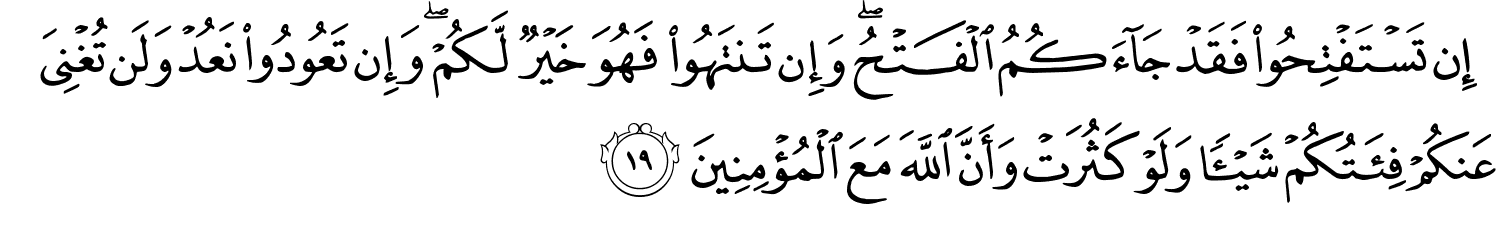 إِن تَسۡتَفۡتِحُواْ فَقَدۡ جَآءَكُمُ ٱلۡفَتۡحُۖ وَإِن تَنتَهُواْ فَهُوَ خَيۡرٞ لَّكُمۡۖ وَإِن تَعُودُواْ نَعُدۡ وَلَن تُغۡنِيَ
عَنكُمۡ فِئَتُكُمۡ شَيۡـٔٗا وَلَوۡ كَثُرَتۡ وَأَنَّ ٱللَّهَ مَعَ ٱلۡمُؤۡمِنِينَ ١٩